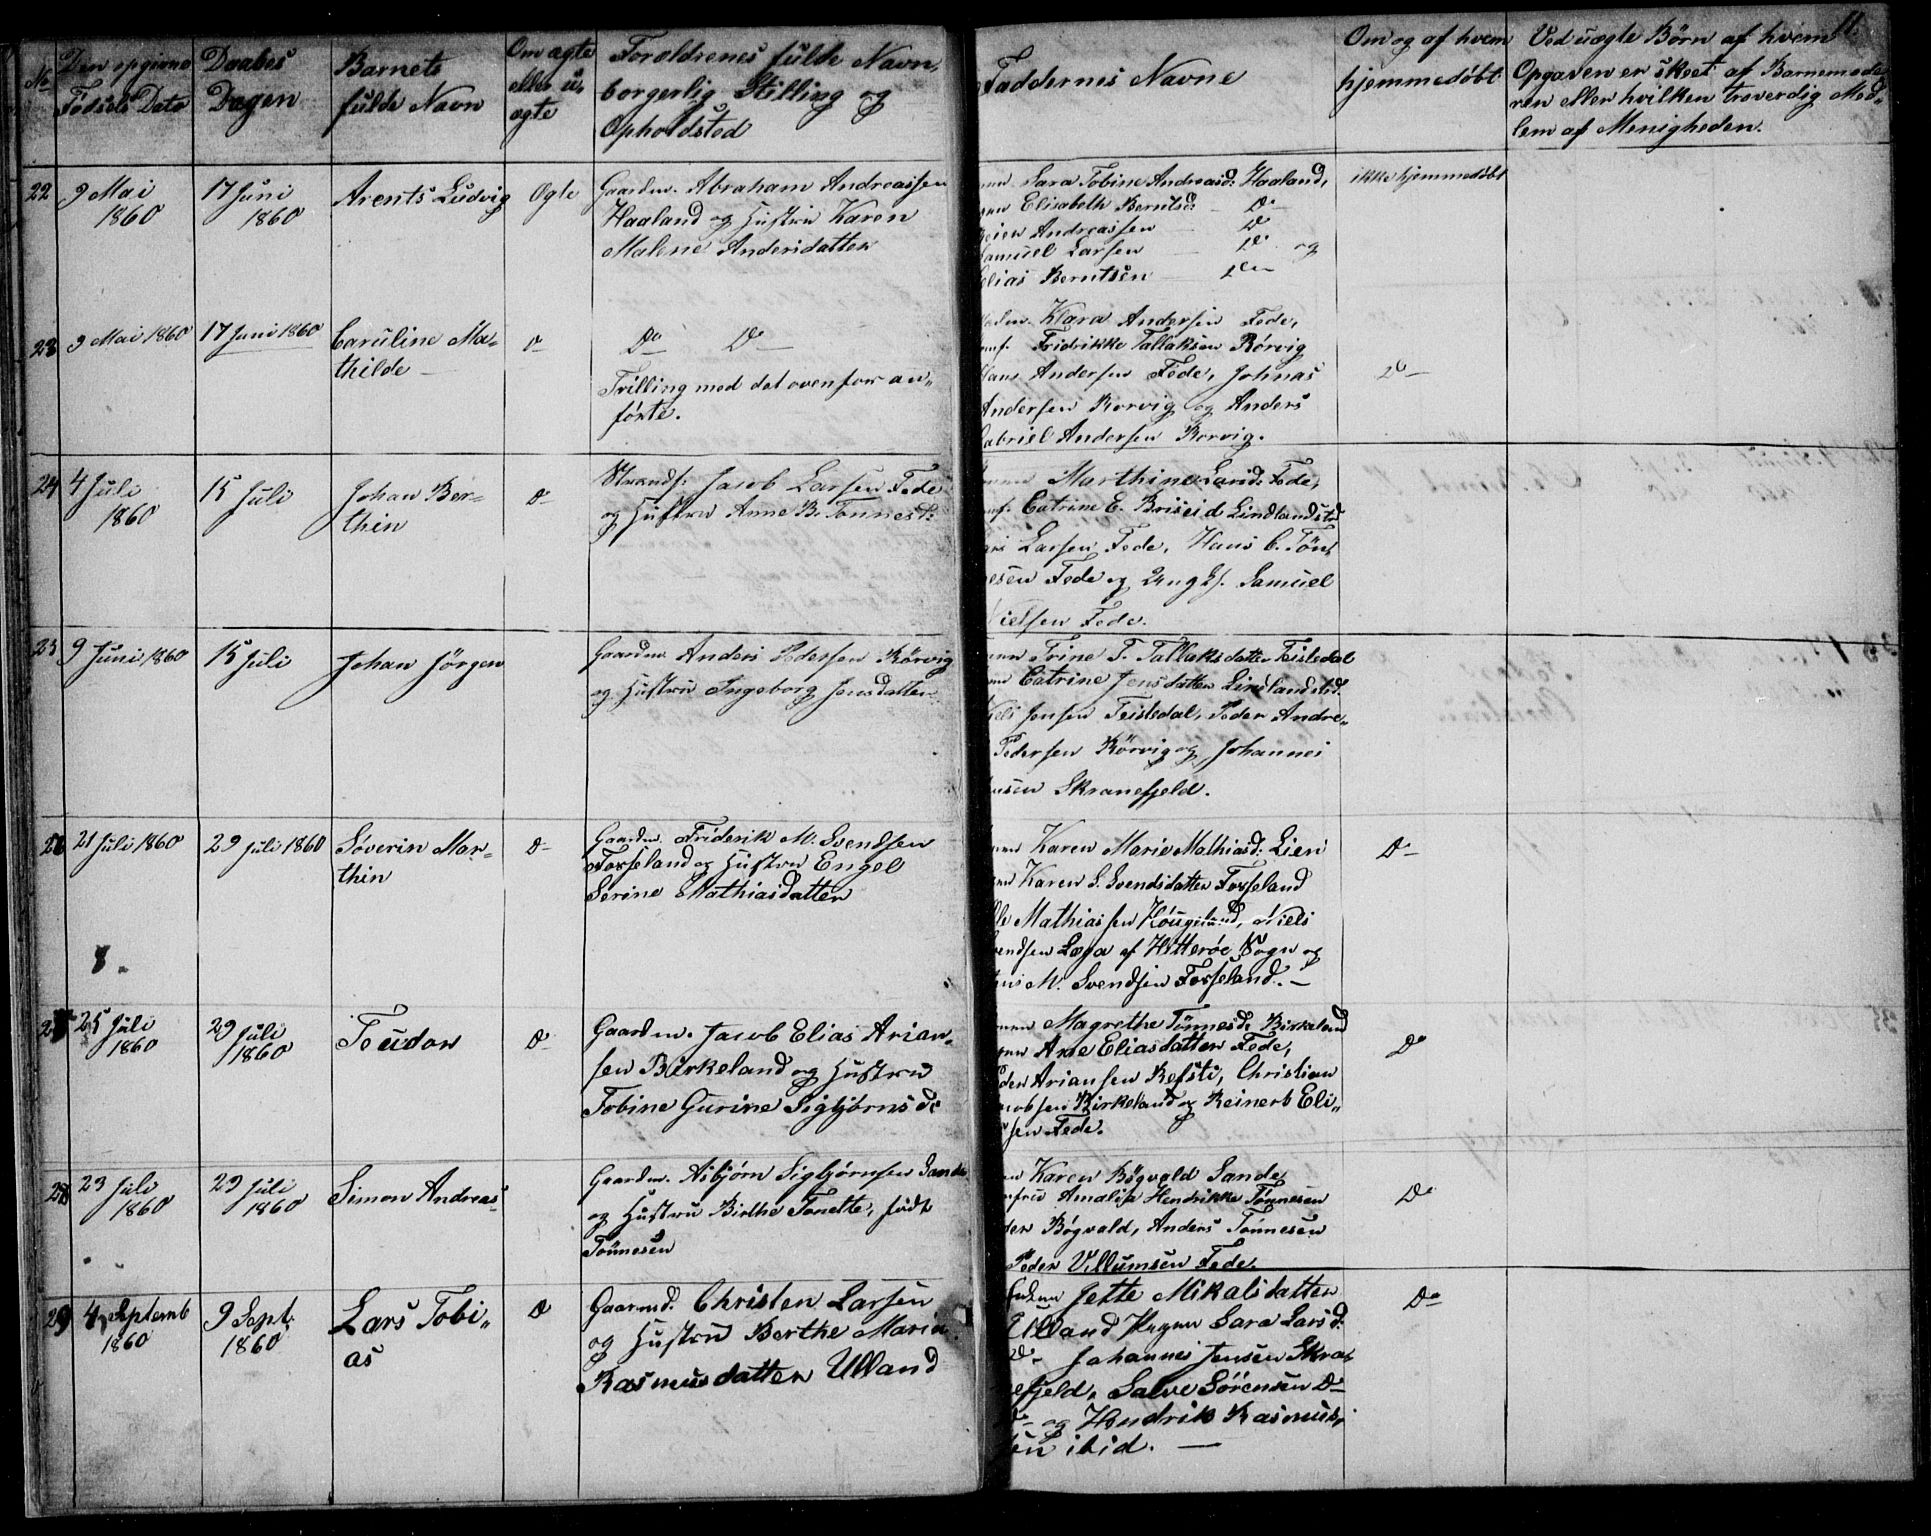 11.
No
Den opgivne
Födsels Dato
Daabes
Dagen
Barnets
fulde Navn
Om ægte
eller u-
ægte
Foroldrenes fulde Navn,
borgerlig Stilling og
Opholdsted
Faddernes Navne
Om og af hvem
hjemmedøbt
Ved uægte Børn af hvem
Opgaven er skeet af Barnemode
ren eller hvilken troverdig Med-
lem af Menigheden.
22
9 Mai
1860
17 Juni
1860
Arents Ludvig
Ogte
Gaardm. Abraham Andreassen
Haaland og Hustru Karen
Malene Andersdatter
Sara Tobine Andreasd: Haaland,
Elisabeth Berntsd: Do
Andreassen Do
Samuel Larsen Do og
Elias Berntsen Do
ikke hjemmedøbt
23
9 Mai 1860
17 Juni 1860
Caruline Ma-
thilde
Do
Do Do
Tvilling med det ovenfor an-
førte.
Klara Andersen Fede,
Fridrikke Tallaksen Rörvig
Hans Andersen Fede, Johnas
Andersen Rorvig og Anders
Gabriel Andersen Rorvig.
Do
24
4 Juli
1860
15 Juli
Johan Ber-
thin
Do
Strandf: Jacob Larsen Fede
og Hustru Anne B. Tonnesd:
Marthine Larsd: Fede,
Catrine E. Briseid Lindlandstd
Larsen Fede, Hans C. Tön
nesen Fede og Ungkf. Samuel
Nielsen Fede.
25
9 Juni 1860
15 Juli
Johan Jörgen
Gaardm Anders Pedersen Rörvig
og Hustru Ingeborg Jensdatter
Trine T. Tallaksdatter Feislsdal
Catrine Jensdatter Lindlandstd.
Niels Jensen Feislsdal, Peder Andre-
Pedersen Rörvig og Johannes
Jensen Skranefjeld.
26
21 Juli 1860
29 Juli 1860
Söverin Mar-
thin
Do
Gaardm. Friderik M. Svendsen
Fosseland og Hustru Engel
Serine Mathiasdatter
Karen Marie Mathiasd: Lien
Karen S. Svendsdatter Fosseland
Mathiassen Hougeland, Niels
Svendsen Læga af Hitteröe Sogn og
M. Svendsen Fosseland.
Do
8
27
25 Juli
1860
29 Juli
1860
Teudor
Do
Gaardm. Jacob Elias Arian-
sen Birkeland og Hustru
Tobine Gurine Sigbjørnsd:
Magrethe Tönnesd: Birkeland
Ane Eliasdatter Fede,
Peder Ariansen Refsti, Christian
Jacobsen Birkeland og Reinert Eli-
sen Fede.
Do
28
23 Juli
1860
29 Juli
1860
Simon Andreas
Gaardm. Asbjørn Sigbjørnsen Sande
og Hustru Birthe Tonette, född
Tönnesen
Karen Bögvald Sande
Amalia Hendrikke Tönnesen
Bögvald, Anders Tönnesen
Peder Villumsen Fede.
Do
29
4 Septemb
1860
9 Sept.
1860
Lars Tobi-
as
Do
Gaarmd. Christen Larsen
og Hustru Berthe Maria
Rasmusdatter Ulland
Jette Mikalsdatter
Ulland Sara Larsd:
Do Johannes Jensen Skra-
nefjeld, Salve Sörensen Do
Do og Hendrik Rasmus-
sen ibid.
Do